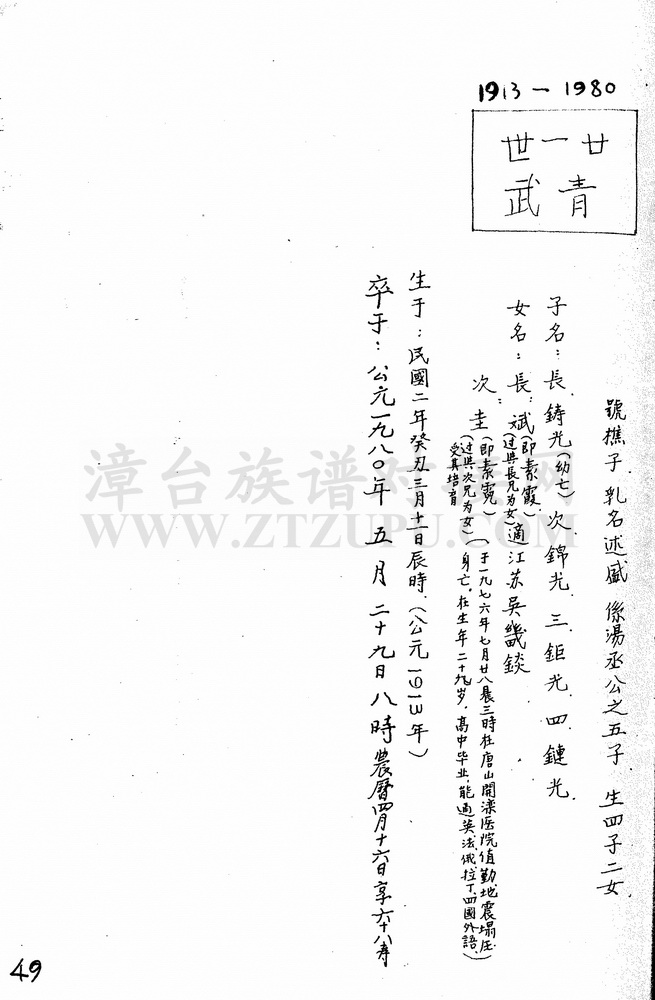 1913－1980
廿一世
青武
號樵子 乳名述感 係湯丞公之五子 生四子二女
子名：長．鋳光（幼七）次．錦光．三．鉅光．四．鏈光．
女名：長：斌（即素霞）（过與長兄为女）適江苏吴畿錟
次：圭（即素霓）（过與次兄为女）受其培育
（于一九七六年七月廿八晨三時在唐山開滦医院值勤地震塌压
身亡，在生年二十九岁，高中毕业，能通英．法．俄．拉丁．四國外語．）
生于：民國二年癸丑三月十二日辰時．（公元1913年）
卒于：公元一九八0年 五月二十九日八時 農曆四月十六日享六十八寿
49
漳台族谱对接网
WWW.ZTZUPU.COM